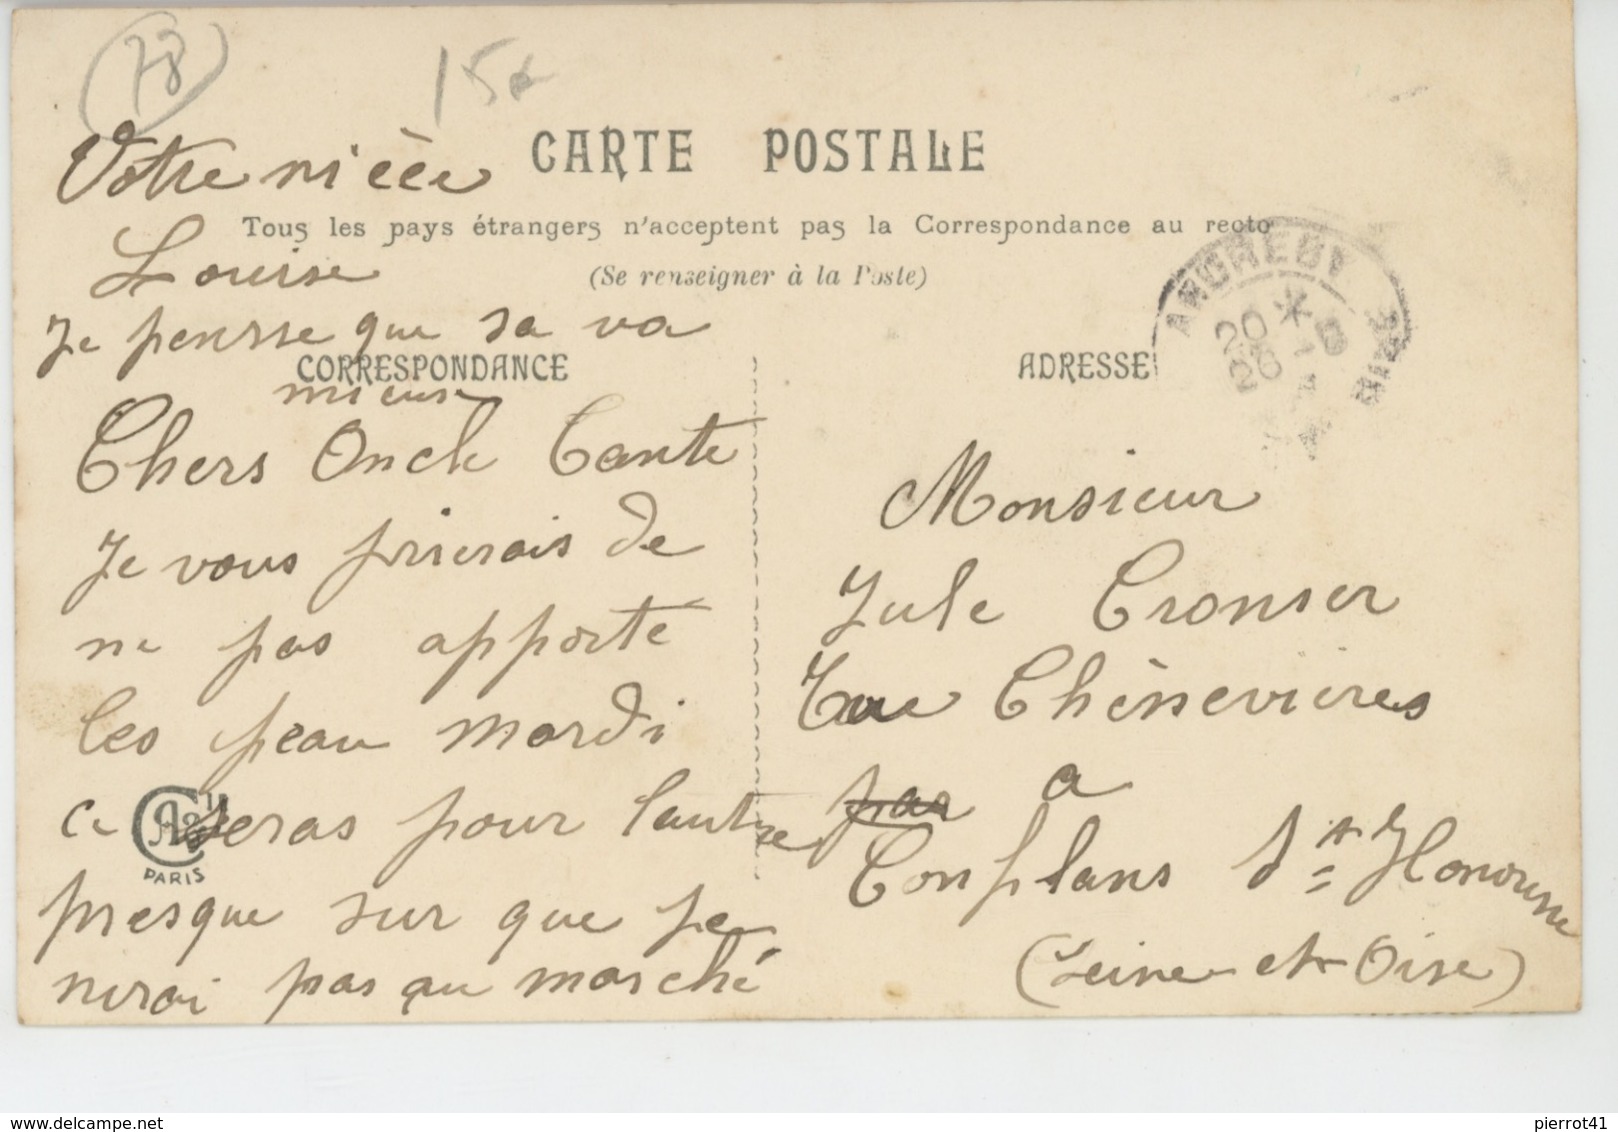 78
15€
Votre nièce
CARTE POSTALE
Tous les pays étrangers n'acceptent pas la Correspondance au recto
(Se renseigner à la Poste)
Louise
Je pensse que sa va
mieus
CORRESPONDANCE
Chers Oncle Tante
Je vous prierais de
ne pas apporté
les peau mardi
ce seras pour lautre
presque sur que je
nirai pas au marché
PARIS
ADRESSE
ANDRESY
20 *
26 - 8
Monsieur
Jule Cronier
rue Chènevières
par a
Conflans St Honorine
(Seine et Oise)
pierrot41